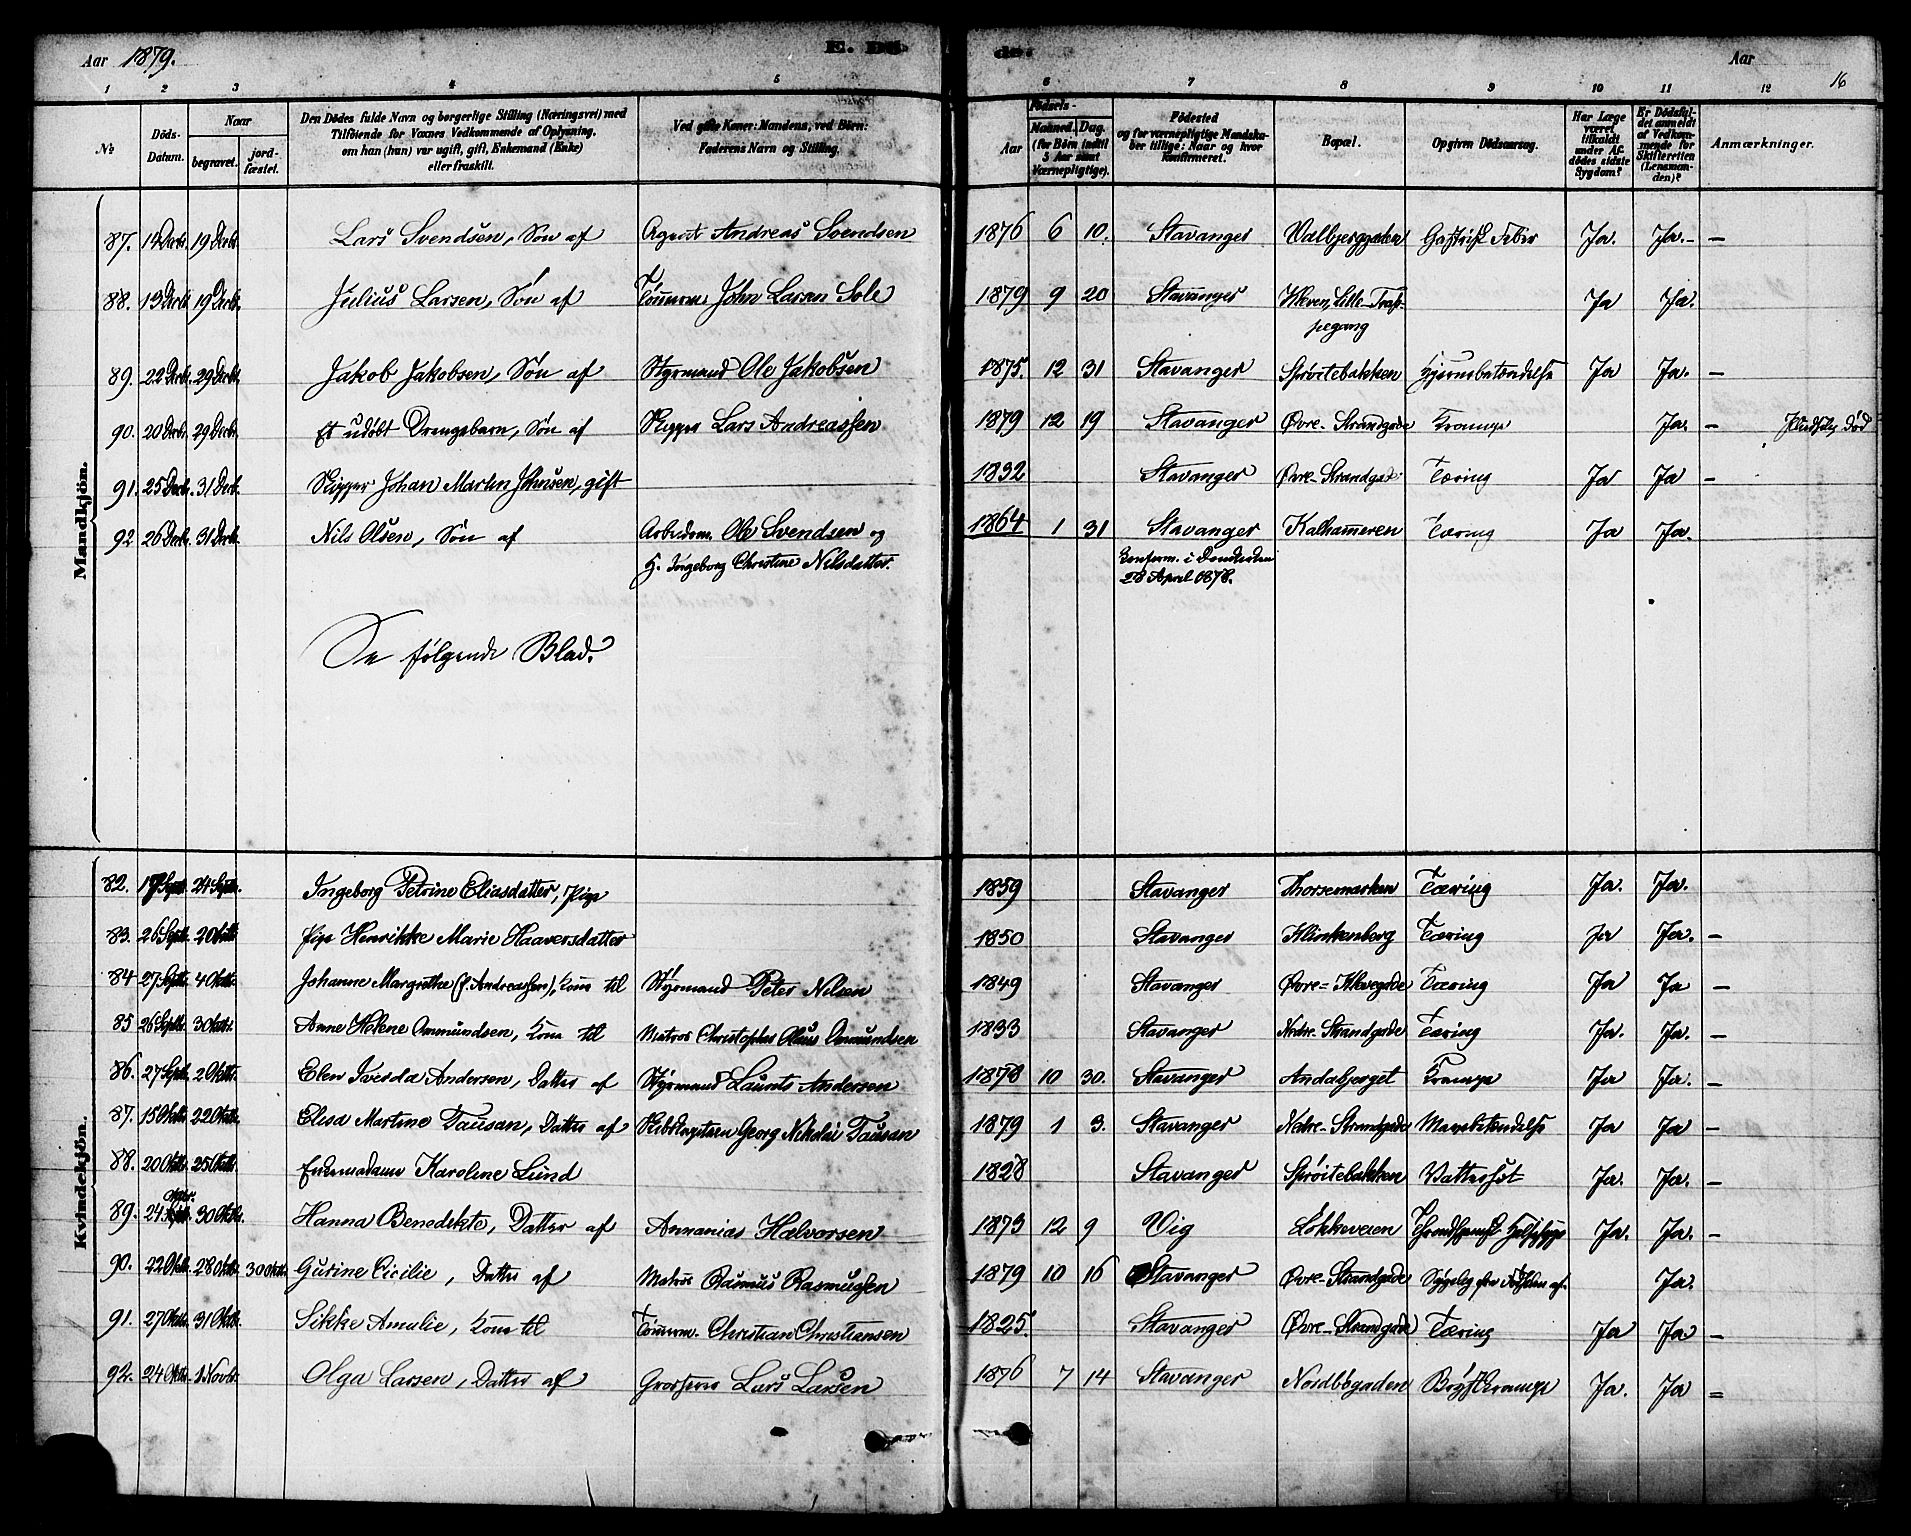 Aar 1879.
E. Dö-
de.
Aar
16
1 2 3 4 5 6 7 8 9 10 11 12
No
Döds-Datum.
Naar
begravet.
jord-fæstet.
Den Dödes fulde Navn og borgerlige Stilling (Næringsvei) med
Tilföiende for Voxnes Vedkommende af Oplysning,
om han (hun) var ugift, gift, Enkemand (Enke)
eller fraskilt.
Ved gifte Koner: Mandens, ved Börn:
Faderens Navn og Stilling.
Födsels-
Aar
Maaned. Dag.
(for Börn indtil
5 Aar samt
Værnepligtige).
Födested
og for værnepligtige Mandska-
ber tillige: Naar og hvor
konfirmeret.
Bopæl.
Opgiven Dödsaarsag.
Har Læge
været
tilkaldt
under Af-
dödes sidste
Sygdom?
Er Dödsfal-
det anmeldt
af Vedkom-
mende for
Skifteretten
(Lensman-
den)?
Anmærkninger.
Mandkjön.
87. 14 Decbr. 19 Decbr. Lars Svendsen, Søn af Agent Andreas Svendsen 1876 6 10. Stavanger Valbjerggaden Gastrisk Feber Ja. Ja. –
88. 13 Decbr. 19 Decbr. Julius Larsen, Søn af Tømmerm. John Larsen Sole 1879 9 20 Stavanger Kleven, Lille Trap-
pegang Ja Ja.
89. 22 Decbr. 29 Decbr. Jakob Jakobsen, Søn af Styrmand Ole Jakobsen 1875. 12 31 Stavanger Sprøitebakken Hjernebetændelse Ja Ja. –
90. 20 Decbr. 29 Decbr. Et udøbt Drengebarn, Søn af Skipper Lars Andreassen 1879 12 19 Stavanger Øvre-Strandgade Krampe Ja. – Pludselig død
91. 25 Decbr. 31 Decbr. Skipper Johan Martin Johnsen, gift 1832 Stavanger Øvre-Strandgade Tæring Ja Ja –
92 26 Decbr. 31 Decbr. Nils Olsen, Søn af Arbeidsm. Ole Svendsen og 1864 1 31 Stavanger Kalhammeren Tæring Ja Ja.
H. Ingeborg Christine Nilsdatter. Konfirm. i Domkirken
28 April 1878.
Se følgende Blad.
Kvindekjön.
82. 17 Septr. 24 Septr. Ingeborg Petrine Eliasdatter, Pige 1859 Stavanger Thorsemarken Tæring Ja. Ja.
83. 26 Septr. 2 Oktbr. Pige Henrikke Marie Haaversdatter 1850 Stavanger Klinkenberg Tæring Ja Ja. –
84 27 Septr. 4 Oktbr. Johanne Margrethe (f. Andreassen), Kone til Styrmand Peter Nilsen 1849 Stavanger Øvre-Klevegade Tæring Ja Ja –
85 26 Septr. 3 Oktbr. Anne Helene Ommundsen, Kone til Matros Christopher Olaus Omundsen 1833 Stavanger Nedre-Strandgade Tæring Ja. Ja. –
86. 27 Septr. 2 Oktbr. Elen Iverda Andersen, Datter af Styrmand Laurits Andersen 1878 10 30. Stavanger Andabjerget Krampe Ja Ja. –
87. 15 Oktbr. 22 Oktbr. Elisa Martine Tausan, Datter af Skibskaptein Georg Nikolai Tausan 1879 1 3. Stavanger Nedre-Strandgade Mavebetændelse Ja Ja –
88. 20 Oktbr. 25 Oktbr. Enkemadam Karoline Lund 1828 Stavanger Sprøitebakken Vattersot Ja. Ja. –
89. 24 Oktbr. 30 Oktbr. Hanna Benedikte, Datter af Annanias Halvorsen 1873 12 9 Vig Løkkeveien Ja. Ja. –
90. 22 Oktbr. 28 Oktbr. 30 Oktbr. Gurine Cicilie, Datter af Matros Rasmus Rasmussen 1879 10 16 Stavanger Øvre-Strandgade Sygelig fra Fødselen af. Ja.
91. 27 Oktbr. 31 Oktbr. Sikke Amalie, Kone til Tømmerm. Christian Christiansen 1825. Stavanger Øvre-Strandgade Tæring Ja Ja –
92. 24 Oktbr. 1 Novbr. Olga Larsen, Datter af Grosserer Lars Larsen 1876 7 14 Stavanger Nordbøgaden Brystkrampe Ja. Ja =